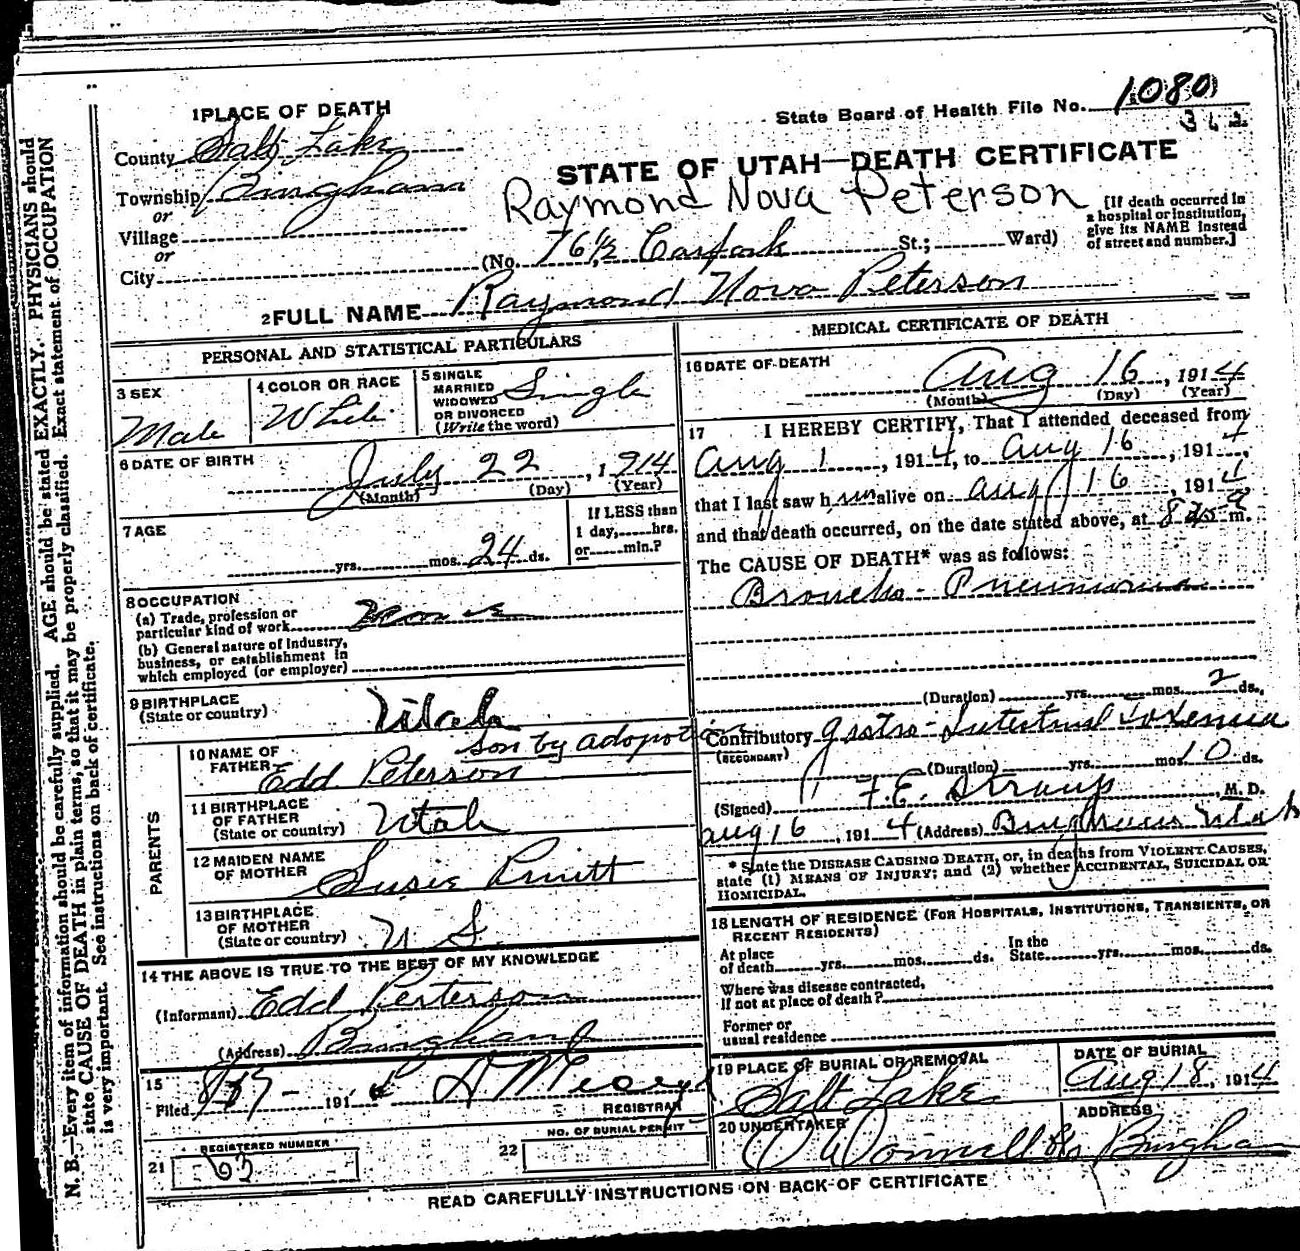 1 PLACE OF DEATH
State Board of Health File No. 1080
County Salt Lake
STATE OF UTAH—DEATH CERTIFICATE
Township Bingham
Raymond Nova Peterson
or
Village
or
City
(No. 76½ Carfork St.; Ward)
[If death occurred in
a hospital or institution,
give its NAME instead
of street and number.]
2 FULL NAME Raymond Nova Peterson
PERSONAL AND STATISTICAL PARTICULARS
3 SEX
Male
4 COLOR OR RACE
White
5 SINGLE
MARRIED
WIDOWED
OR DIVORCED
(Write the word)
Single
6 DATE OF BIRTH
July 22, 1914
(Month) (Day) (Year)
7 AGE
yrs. mos. 24 ds.
If LESS than
1 day, hrs.
or min.?
8 OCCUPATION
(a) Trade, profession or
particular kind of work
(b) General nature of Industry,
business, or establishment in
which employed (or employer)
9 BIRTHPLACE
(State or country)
Utah
son by adopotion
PARENTS
10 NAME OF
FATHER
Edd Peterson
11 BIRTHPLACE
OF FATHER
(State or country)
Utah
12 MAIDEN NAME
OF MOTHER
Susie Pruitt
13 BIRTHPLACE
OF MOTHER
(State or country)
U S.
14 THE ABOVE IS TRUE TO THE BEST OF MY KNOWLEDGE
(Informant) Edd Perterson
(Address) Bingham
15
Filed 191
REGISTRAR
REGISTERED NUMBER
21 63
NO. OF BURIAL PERMIT
22
MEDICAL CERTIFICATE OF DEATH
16 DATE OF DEATH
Aug 16, 1914
(Month) (Day) (Year)
17 I HEREBY CERTIFY, That I attended deceased from
Aug 1, 1914, to Aug 16, 1914,
that I last saw him alive on Aug 16, 1914
and that death occurred, on the date stated above, at 8 m.
The CAUSE OF DEATH* was as follows:
Broncho-Pneumonia
(Duration) yrs. mos. 2 ds.
Contributory Gastro-Intestinal toxemia
(SECONDARY)
(Duration) yrs. mos. 10 ds.
(Signed) F. E. Straup, M. D.
Aug 16, 1914 (Address) Bingham Utah
* State the DISEASE CAUSING DEATH, or, in deaths from VIOLENT CAUSES,
state (1) MEANS OF INJURY; and (2) whether ACCIDENTAL, SUICIDAL OR
HOMICIDAL.
18 LENGTH OF RESIDENCE (FOR HOSPITALS, INSTITUTIONS, TRANSIENTS, OR
RECENT RESIDENTS)
At place
of death yrs. mos. ds.
In the
State yrs. mos. ds.
Where was disease contracted,
If not at place of death?
Former or
usual residence
19 PLACE OF BURIAL OR REMOVAL
Salt Lake
DATE OF BURIAL
Aug 18, 1914
20 UNDERTAKER
O'Donnell
ADDRESS
Bingham
READ CAREFULLY INSTRUCTIONS ON BACK OF CERTIFICATE
N. B.—Every item of information should be carefully supplied. AGE should be stated EXACTLY. PHYSICIANS should
state CAUSE OF DEATH in plain terms, so that it may be properly classified. Exact statement of OCCUPATION
is very important. See instructions on back of certificate.